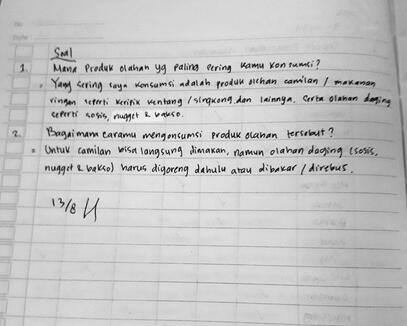 Soal
1. Mana Produk olahan yg paling sering kamu konsumsi?
• Yang sering saya konsumsi adalah produk olahan camilan / makanan
ringan seperti keripik kentang / singkong dan lainnya. Serta olahan daging
seperti sosis, nugget & bakso.
2. Bagaimana caramu mengonsumsi produk olahan tersebut?
= Untuk camilan bisa langsung dimakan, namun olahan daging (sosis,
nugget & bakso) harus digoreng dahulu atau dibakar / direbus.
13/8